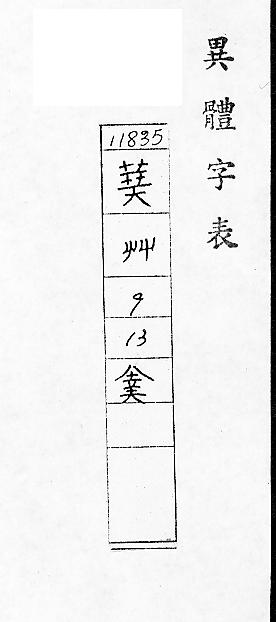 異體字表
11835
艸
9
13